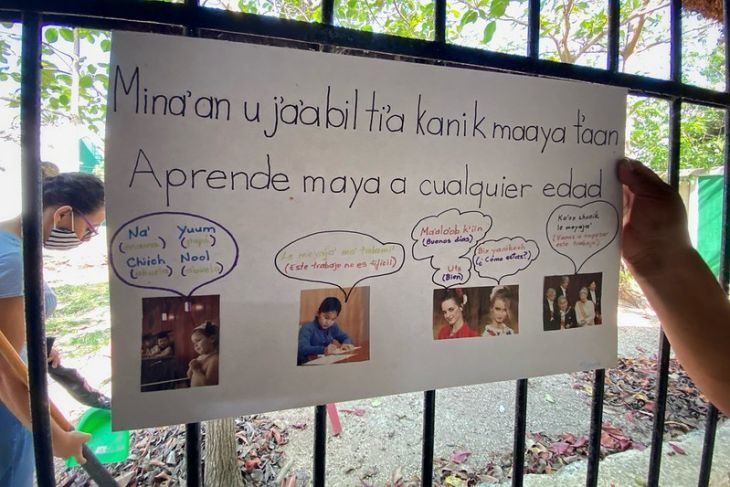 Mina'an u ja'abil ti'a kanik maaya t'aan
Aprende maya a cualquier edad
Na' Yuum
(mamá) (papá)
Chiich Nool
(abuela) (abuelo)
Le meyaja' ma' talami'
(Este trabajo no es difícil)
Ma'alo'ob k'iin
(Buenos días)
Uts
(Bien)
Bix yanikech
(¿Cómo estás?)
Ko'ox chunik
le meyaja'
(Vamos a empezar
este trabajo)